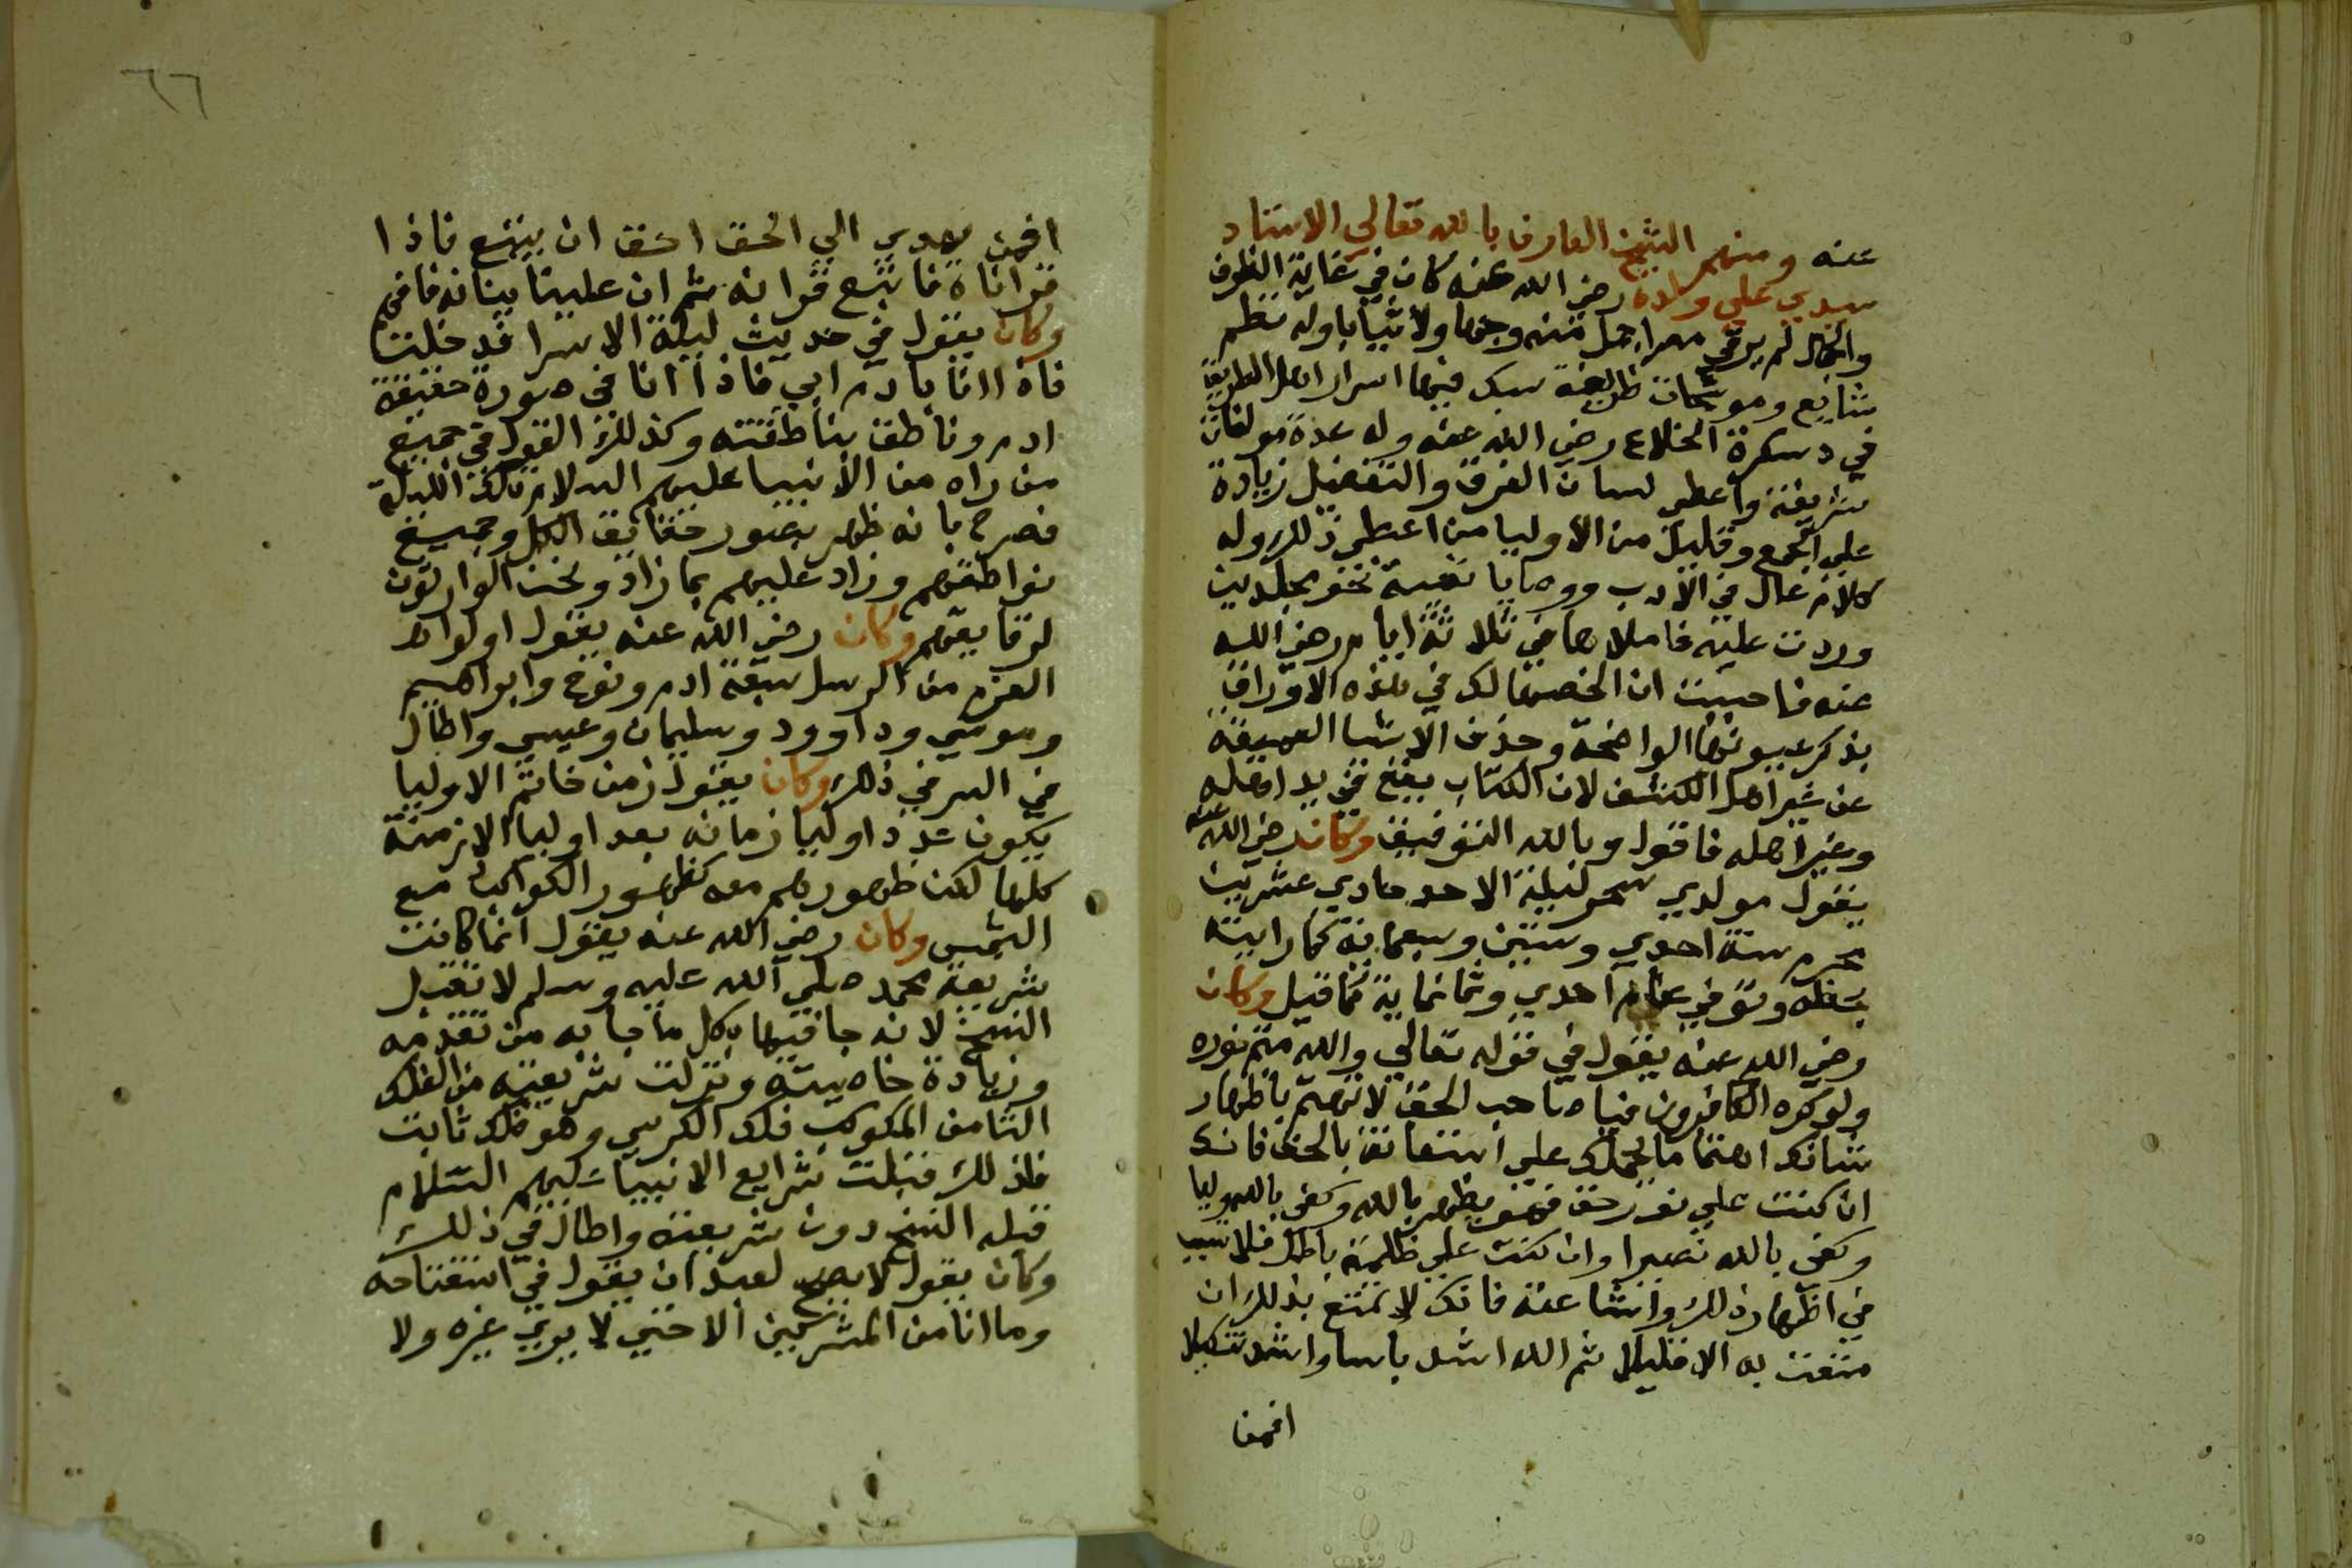 عنه ومنهم الشيخ العارف بالله تعالى الاستاد
سيدي علي ولده رضي الله عنه كان في غاية الظرف
والجمال لم ير في مصر اجمل منه وجها ولا ثيابا وله نظم
شايع وموشحات ظريفة سبك فيها اسرار اهل الطريق
في دسكرة الخلاع رضي الله عنه وله عدة مولفات
شريفة واعطى لسان الفرق والتفصيل زيادة
على الجمع وقليل من الاوليا من اعطى ذلك وله
كلام عال في الادب ووصايا نفيسة نحو مجلدين
وردت عليه فاملاها في ثلاثة ايام رضي الله
عنه فاحببت ان الخصها لك في هذه الاوراق
بذكر عيونها الواضحة وحذف الاشيا العميقة
عن غير اهل الكشف لان الكتاب يقع في يد اهله
وغير اهله فاقول وبالله التوفيق وكان رضي الله عنه
يقول مولدي سحر ليلة الاحد حادي عشرين
محرم سنة احدي وستين وسبعماية كما رايته
بخطه وتوفي عام احدي وثمانماية كما قيل وكان
رضي الله عنه يقول في قوله تعالى والله متم نوره
ولو كره الكافرون فيا صاحب الحق لا تهتم باظهار
شانك اهتماما يحملك علي استعانة بالخلق فانك
ان كنت علي نور حق فهو يظهر بالله وكفى بالله وليا
وكفى بالله نصيرا وان كنت علي ظلمة باطل فلا تتسبب
في اظهار ذلك واشاعته فانك لا تمتع بذلك ان
متعت به الا قليلا ثم الله اشد باسا واشد تنكيلا
افمن
٦٦
افمن يهدي الى الحق احق ان يتبع فاذا
قراناه فاتبع قرانه ثم ان علينا بيانه فافهم
وكان يقول في حديث ليلة الاسرا فدخلت
فاذا انا بادم اي فاذا انا في صورة حقيقة
ادم وناطق بناطقته وكذلك القول في جميع
من راه من الانبيا عليهم السلام تلك الليلة
فصرح بانه ظهر بصور حقايق الكل وجميع
نواطقهم وزاد عليهم بما زاد ونحن الوارثون
لرقايقهم وكان رضي الله عنه يقول اولوا
العزم من الرسل سبعة ادم ونوح وابراهيم
وموسى وداوود وسليمان وعيسى واطال
في السر في ذلك وكان يقول زمن خاتم الاوليا
يكون عدد اوليا زمانه بعد اوليا الازمنة
كلها لكن ظهورهم معه كظهور الكواكب مع
الشمس وكان رضي الله عنه يقول انما كانت
شريعة محمد صلى الله عليه وسلم لا تقبل
النسخ لانه جا فيها بكل ما جا به من تقدمه
وزيادة خاصيته ونزلت شريعته من الفلك
الثامن المكوكب فلك الكرسي وهو فلك ثابت
فلذلك قبلت شرايع الانبيا عليهم السلام
قبله النسخ دون شريعته واطال في ذلك
وكان يقول لا يصح لعبد ان يقول في استفتاحه
وما انا من المشركين الا حتي لا يري غيره ولا